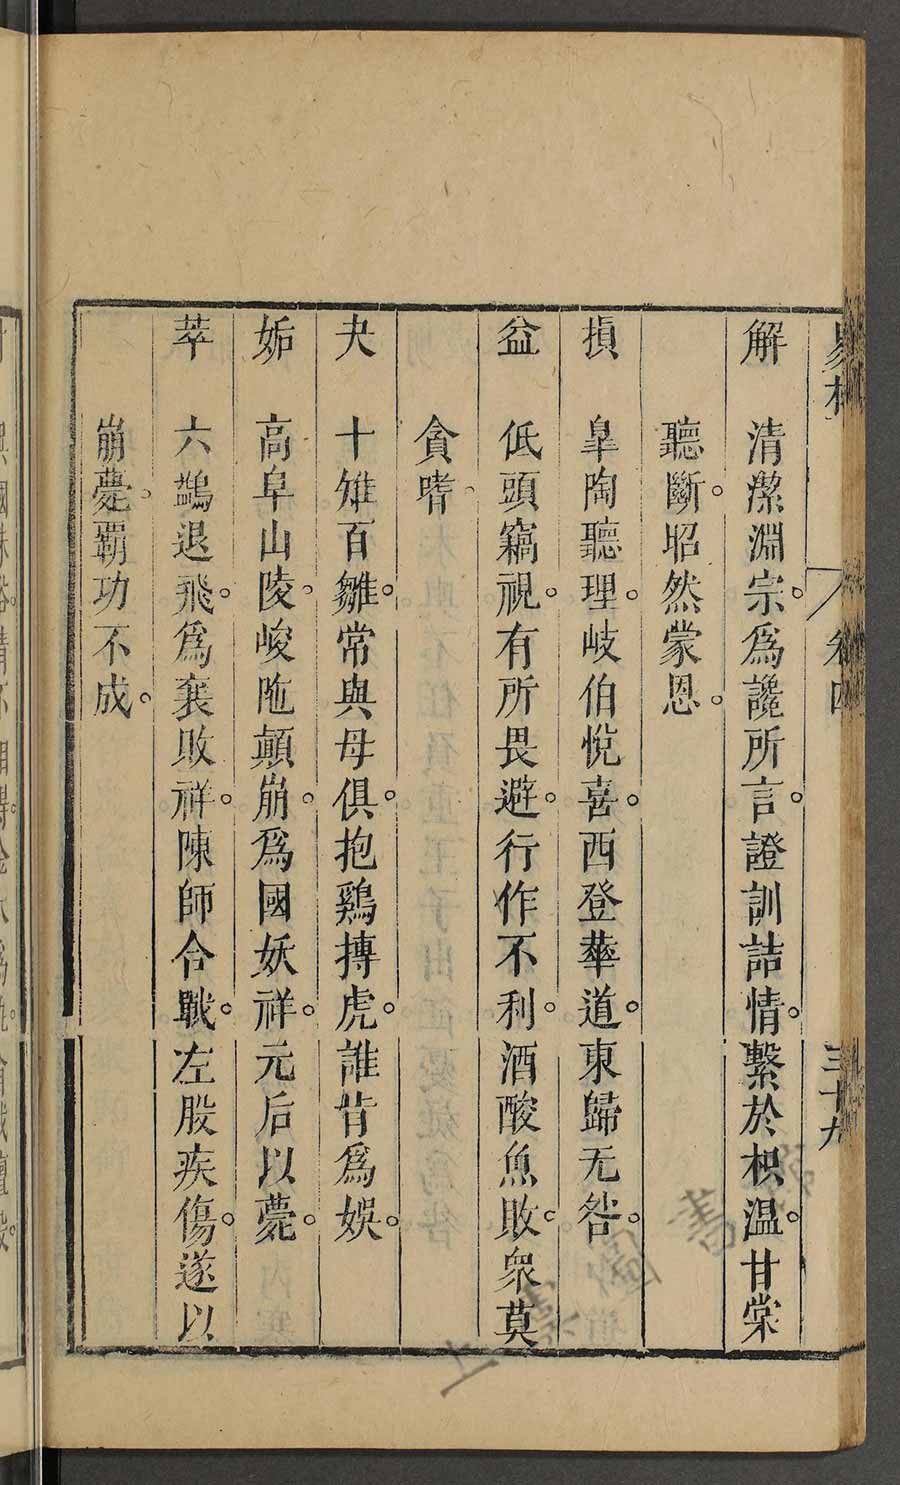 易林 卷四 三十九
解 清潔淵宗。爲讒所言。證訓詰情。繫於枳温。甘棠
聽斷。昭然蒙恩。
損 臯陶聽理。岐伯悅喜。西登華道。東歸无咎。
益 低頭竊視。有所畏避。行作不利。酒酸魚敗。衆莫
貪嗜。
夬 十雉百雛。常與母俱。抱鷄搏虎。誰肯爲娛。
姤 高阜山陵。峻陁顛崩。爲國妖祥。元后以薨。
萃 六鷁退飛。爲衰敗祥。陳師合戰。左股疾傷。遂以
崩薨。覇功不成。